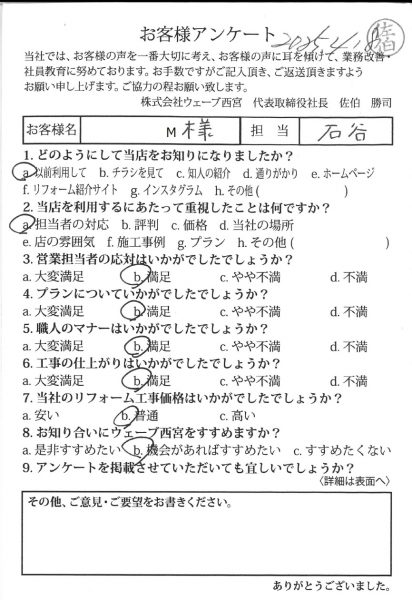 お客様アンケート
2025.4.18
佐伯
当社では、お客様の声を一番大切に考え、お客様の声に耳を傾けて、業務改善・
社員教育に努めております。お手数ですがご記入頂き、ご返送頂きますよう
お願い申し上げます。ご協力の程お願い致します。
株式会社ウェーブ西宮 代表取締役社長 佐伯 勝司
お客様名 M 様 担 当 石谷
1. どのようにして当店をお知りになりましたか？
a. 以前利用して b. チラシを見て c. 知人の紹介 d. 通りがかり e. ホームページ
f. リフォーム紹介サイト g. インスタグラム h. その他 ( )
2. 当店を利用するにあたって重視したことは何ですか？
a. 担当者の対応 b. 評判 c. 価格 d. 当社の場所
e. 店の雰囲気 f. 施工事例 g. プラン h. その他 ( )
3. 営業担当者の応対はいかがでしたでしょうか？
a. 大変満足 b. 満足 c. やや不満 d. 不満
4. プランについていかがでしたでしょうか？
a. 大変満足 b. 満足 c. やや不満 d. 不満
5. 職人のマナーはいかがでしたでしょうか？
a. 大変満足 b. 満足 c. やや不満 d. 不満
6. 工事の仕上がりはいかがでしたでしょうか？
a. 大変満足 b. 満足 c. やや不満 d. 不満
7. 当社のリフォーム工事価格はいかがでしたでしょうか？
a. 安い b. 普通 c. 高い
8. お知り合いにウェーブ西宮をすすめますか？
a. 是非すすめたい b. 機会があればすすめたい c. すすめたくない
9. アンケートを掲載させていただいても宜しいでしょうか？
〈詳細は表面へ〉
その他、ご意見・ご要望をお書きください。
ありがとうございました。